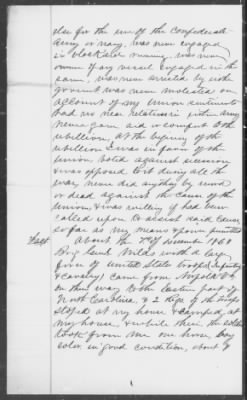 else for the use of the Confederate
Army or navy, was never engaged
in blockade running, was never
owner of any vessel engaged in the
same, was never arrested by either
government was never molested on
account of my Union sentiments
had no near relatives in either Army
never gave aid or comfort to the
rebellion, at the begining of the
rebellion I was in favor of the
Union, voted against secession
& was opposed to it during all the
war, never did anything by word
or deed against the cause of the
Union, & was willing if had been
called upon to assist said cause
so far as my means & power permitted
About the December 186
Brig Genl Wilds with a large
force of United States troops Infantry
& Cavalry) came from Norfolk Va
on their way to the Eastern part of
North Carolina, & 2 Regs of the troops
stoped at my house & camped, at
my house, & while there the soldiers
took from me one horse, bay
color in good condition, about 9